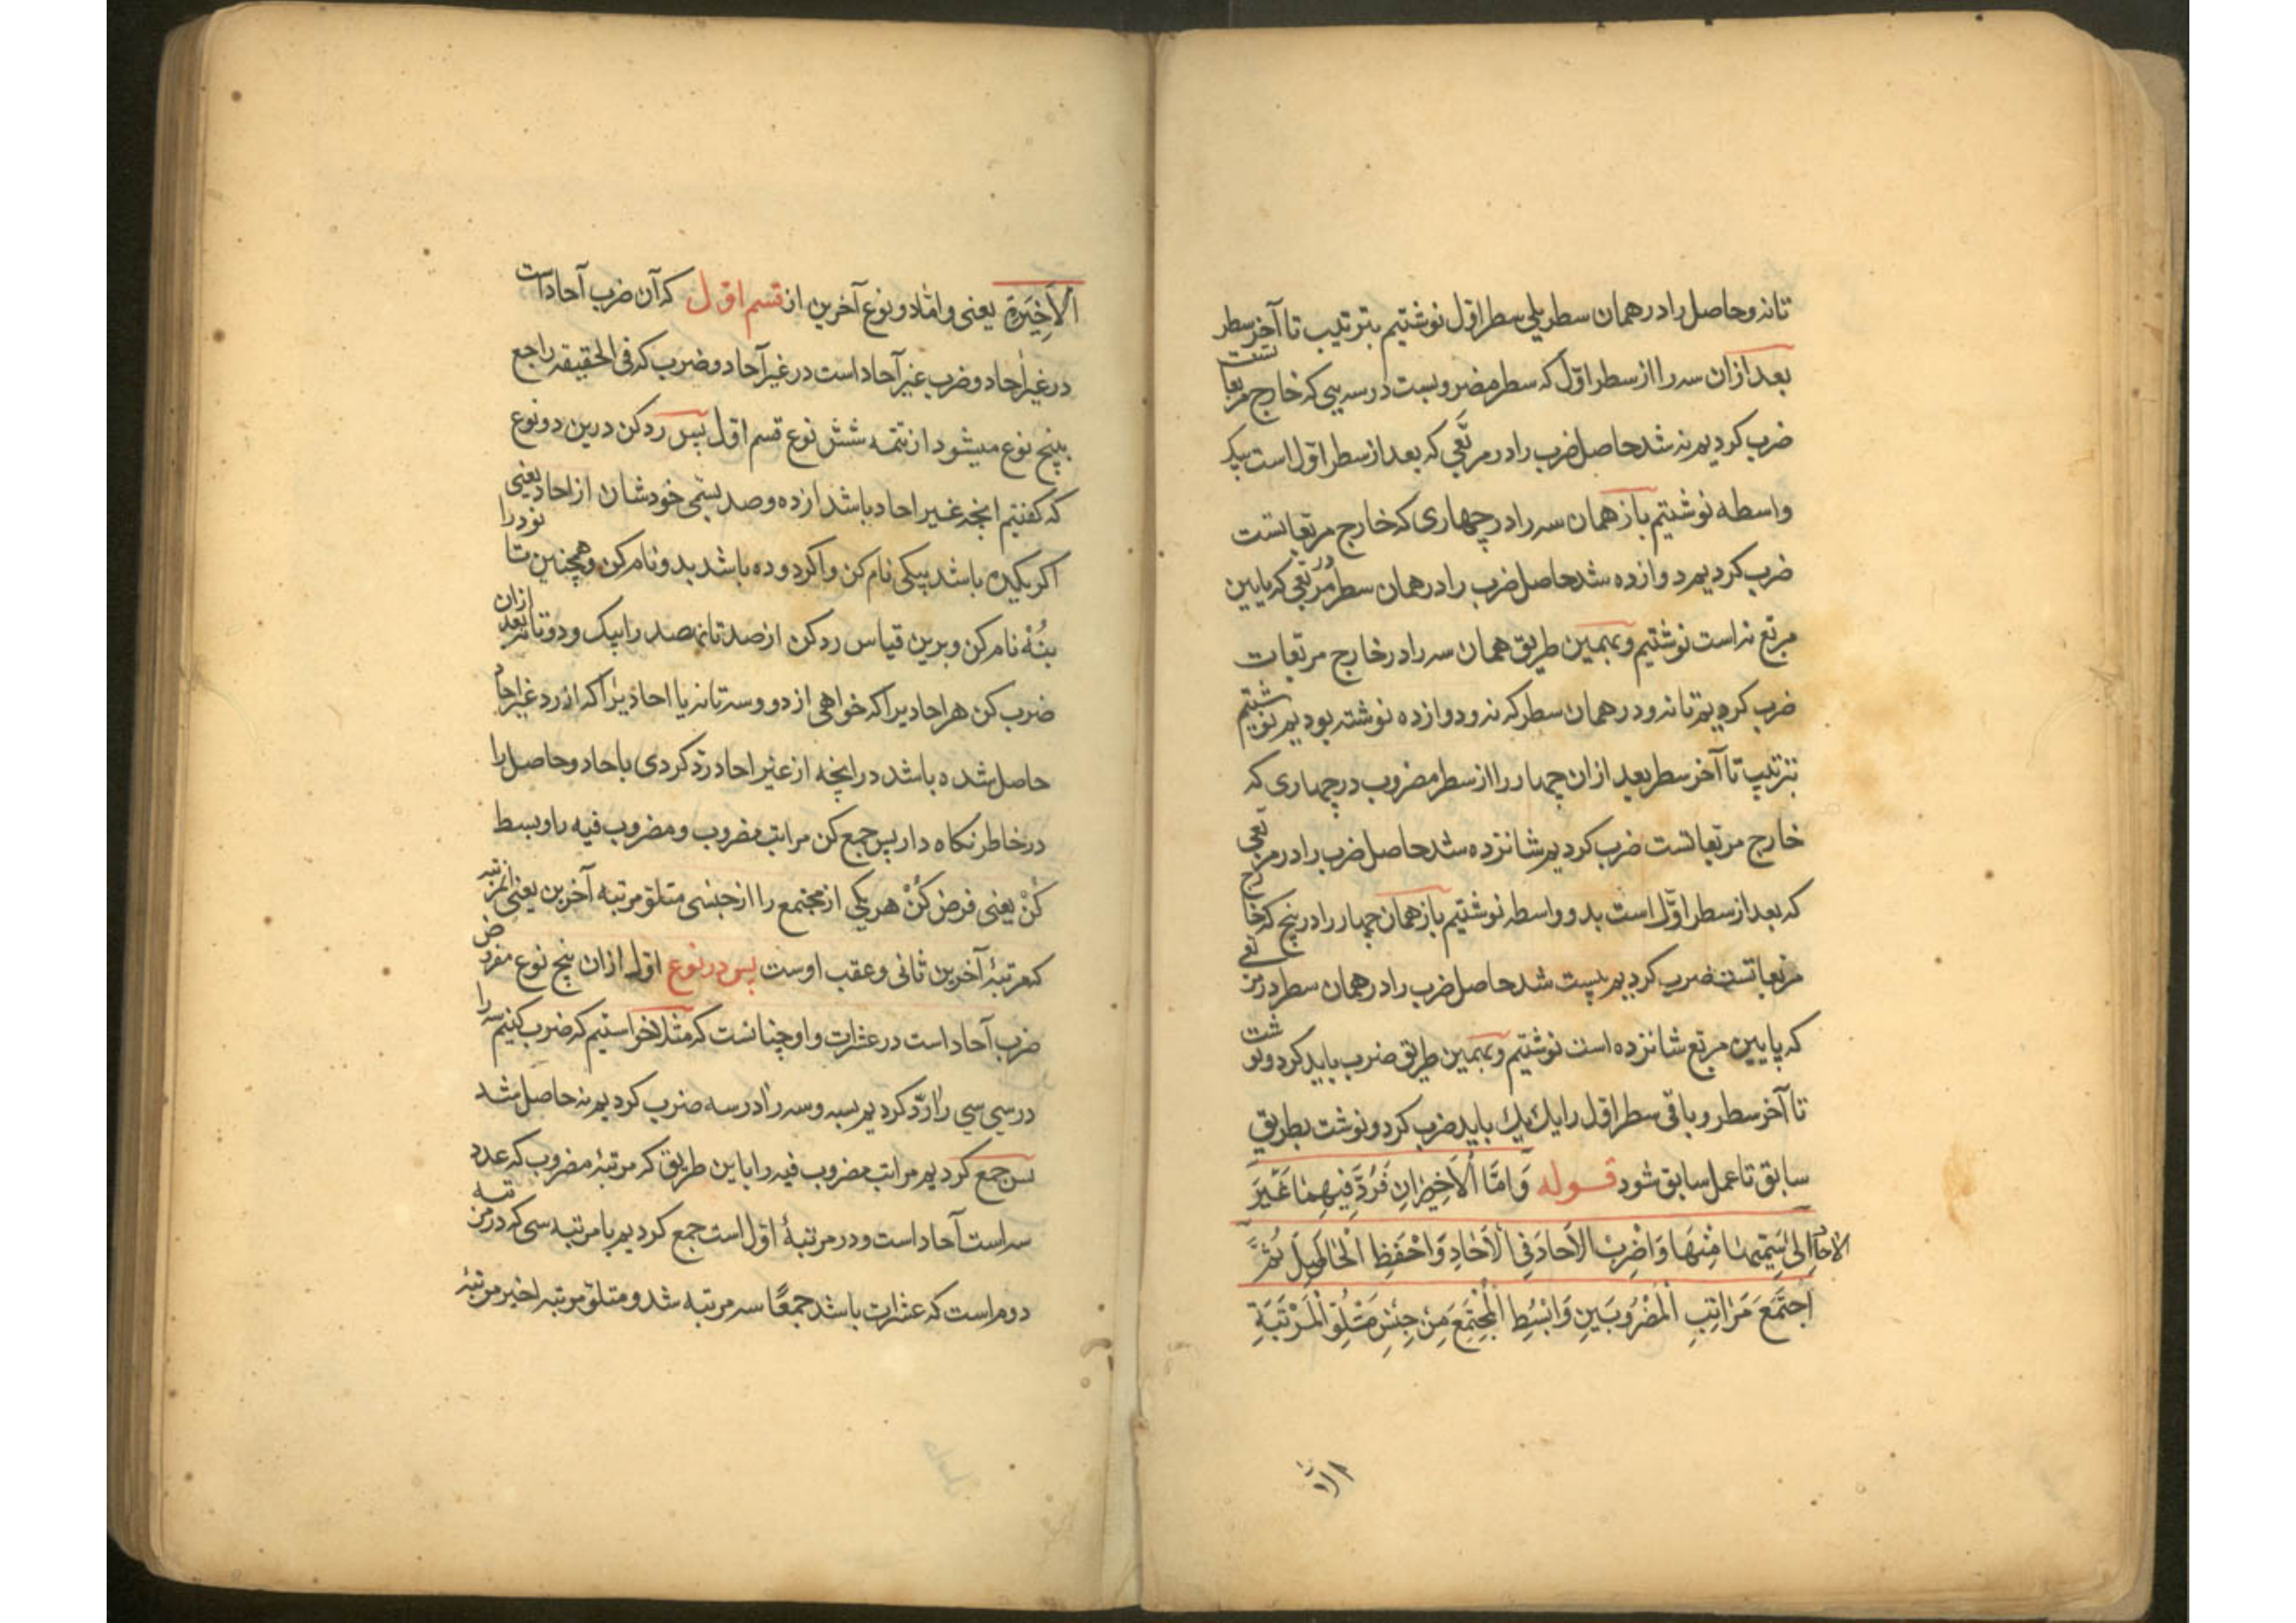 تا نه و حاصل را در همان سطر یلی سطر اول نوشتیم بترتیب تا آخر سطر
بعد از ان سه را از سطر اوّل که سطر مضروبست در سه یی که خارج مربعاتست
ضرب کردیم نه شد حاصل ضرب را در مربّعی که بعد از سطر اوّل است بیک
واسطه نوشتیم باز همان سه را در چهاری که خارج مربعاتست
ضرب کردیم دوازده شد حاصل ضرب را در همان سطر در مربّعی که پایین
مربع نه است نوشتیم و بهمین طریق همان سه را در خارج مربعات
ضرب کردیم تا نه و در همان سطر که نه و دوازده نوشته بودیم نوشتیم
بترتیب تا آخر سطر بعد از ان چهار را از سطر مضروب در چهاری که
خارج مربعاتست ضرب کردیم شانزده شد حاصل ضرب را در مربعی
که بعد از سطر اوّل است بدو واسطه نوشتیم باز همان چهار را در پنج که خارج
مربعاتست ضرب کردیم بیست شد حاصل ضرب را در همان سطر در مربعی
که پایین مربع شانزده است نوشتیم و بهمین طریق ضرب باید کرد و نوشت
تا آخر سطر و باقی سطر اول را یک یک باید ضرب کرد و نوشت بطریق
سابق تا عمل سابق شود قوله وَاَمَّا الْاَخِيرَانِ فَرُدَّ فِيهِمَا غَيْرَ
الاحاد اِلىٰ سَمِيِّهَا مِنْهَا وَاضْرِبْ الْاَحَادَ فِي الْاَحَادِ وَاحْفَظِ الْحَاصِلَ ثُمَّ
اجْتَمَعَ مَرَاتِبِ الْمَضْرُوبَيْنِ وَابْسُطِ الْمُجْتَمَعَ مِنْ جِنْسِ مَتْلُوِّ الْمَرْتَبَةِ
الْاَخِيَرةِ یعنی و امّا دو نوع آخرین از قسم اوّل که آن ضرب آحاد است
در غیر احاد و ضرب غیر آحاد است در غیر آحاد و ضرب که فی الحقیقه راجع
بپنج نوع میشود از تتمه شش نوع قسم اول پس رد کن درین دو نوع
که گفتیم انچه غیر احاد باشد از ده و صد بسمّی خودشان از احاد یعنی
اکر یکده باشد بیکی نام کن و اکر دو ده باشد بدو نام کن و همچنین تا نود را
بنُهْ نام کن و برین قیاس رد کن از صد تا نهصد را بیک و دو تا نه بعد ازان
ضرب کن هر احادیرا که خواهی از دو و سه تا نه یا احادیرا که از رد غیر احاد
حاصل شده باشد در انچه از غیر احاد ردّ کردی باحاد و حاصل را
در خاطر نکاه دار پس جمع کن مراتب مضروب و مضروب فیه را و بسط
کُنْ یعنی فرض کُنْ هر یکی از مجتمع را از جنسی متلوّ مرتبه آخرین یعنی از مرتبه
که مرتبهٔ آخرین ثانی و عقب اوست پس در نوع اوّل ازان پنج نوع مفروض
ضرب آحاد است در عشرات و او چنانست که مثلا خواستیم که ضرب کنیم سه را
در سی سی را ردّ کردیم بسه و سه را در سه ضرب کردیم نه حاصل شد
پس جمع کردیم مراتب مضروب فیه را باین طریق که مرتبهٔ مضروب که عدد
سه است آحاد است و در مرتبهٔ اوّل است جمع کردیم با مرتبه سی که در مرتبه
دوم است که عشرات باشد جمعًا سه مرتبه شد و متلوّ مرتبه اخیر مرتبهٔ